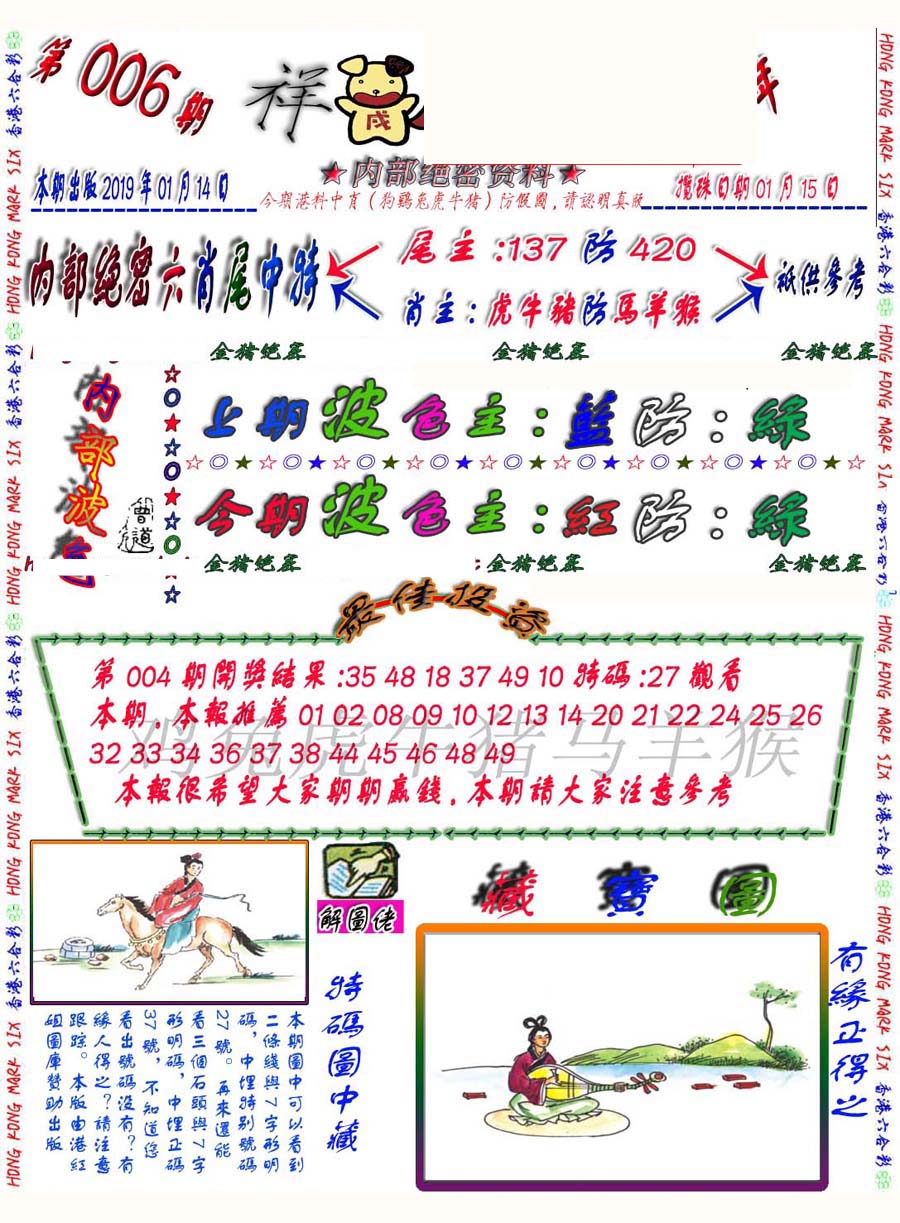 第006期
祥
戌
年
★内部绝密资料★
本期出版2019年01月14日
今期港料中肖(狗鷄兔虎牛豬)防假圖,請認明真版
攪珠日期01月15日
内部絶密六肖尾中特
尾主:137防420
肖主:虎牛豬防馬羊猴
祇供參考
金猪绝密 金猪绝密 金猪绝密
内部波色
曾道
上期波色主:藍防:綠
今期波色主:紅防:綠
金猪绝密 金猪绝密 金猪绝密
最佳投注
第004期開獎結果:35 48 18 37 49 10 特碼:27 觀看
本期.本報推薦 01 02 08 09 10 12 13 14 20 21 22 24 25 26
32 33 34 36 37 38 44 45 46 48 49
鸡兔虎牛猪马羊猴
本報很希望大家期期贏錢.本期請大家注意參考
解圖佬
藏寶圖
特碼圖中藏
有緣正得之
本期圖中可以看到
二條綫與7字形明
碼,中埋特别號碼
27號。再來還能
看三個石頭與7字
形明碼,中埋正碼
37號,不知道您
看出號碼没有?有
緣人得之?請注意
跟踪。本版由港紅
姐圖庫贊助出版
香港六合彩 HONG KONG MARK SIX 香港六合彩 HONG KONG MARK SIX 香港六合彩 HONG KONG MARK SIX 香港六合彩 HONG KONG MARK SIX
HONG KONG MARK SIX 香港六合彩 HONG KONG MARK SIX 香港六合彩 HONG KONG MARK SIX 香港六合彩 HONG KONG MARK SIX 香港六合彩